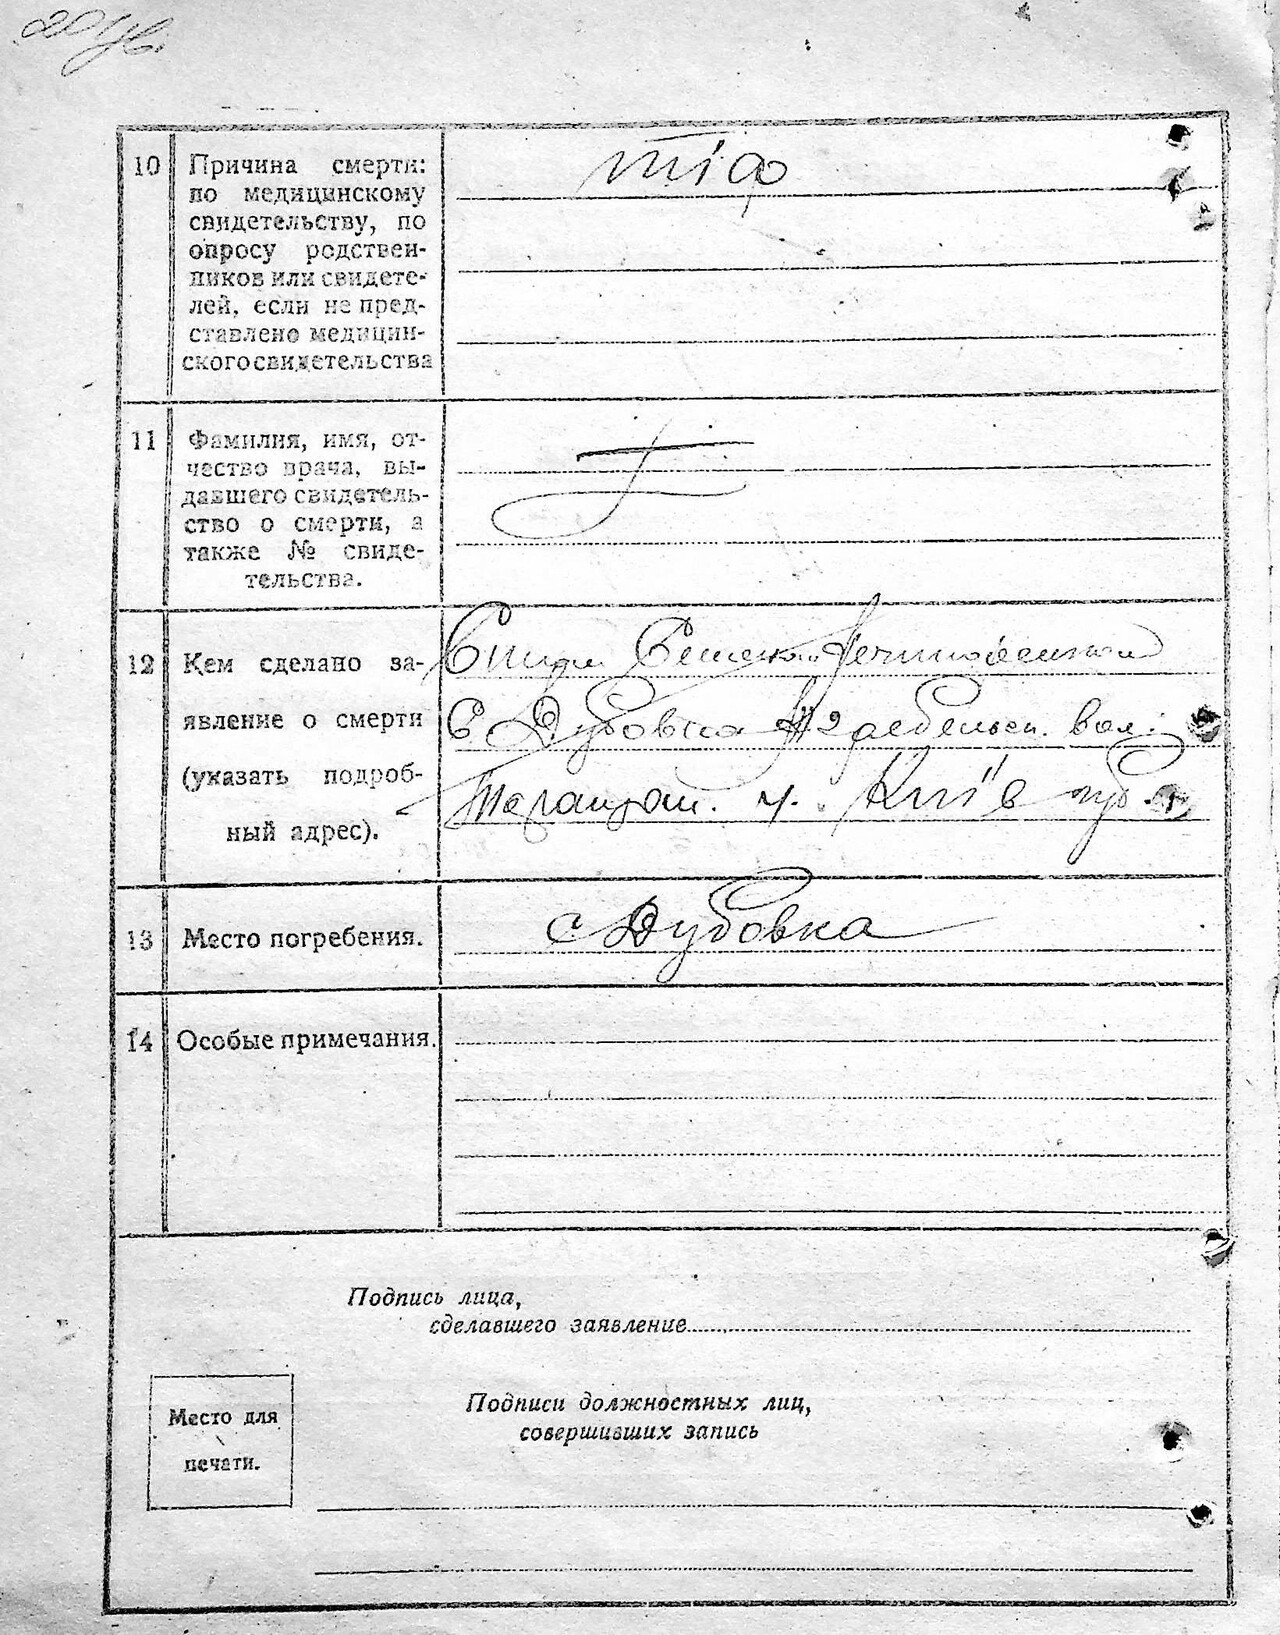 10
Причина смерти:
по медицинскому
свидетельству, по
опросу родствен-
ников или свидете-
лей, если не пред-
ставлено медицин-
ского свидетельства
тіф
11
Фамилия, имя, от-
чество врача, вы-
давшего свидетель-
ство о смерти, а
также № свиде-
тельства.
12
Кем сделано за-
явление о смерти
(указать подроб-
ный адрес).
С. Дубовка вол.
Київ губ.
13
Место погребения.
с Дубовка
14
Особые примечания.
Подпись лица,
сделавшего заявление
Место для
печати.
Подписи должностных лиц,
совершивших запись